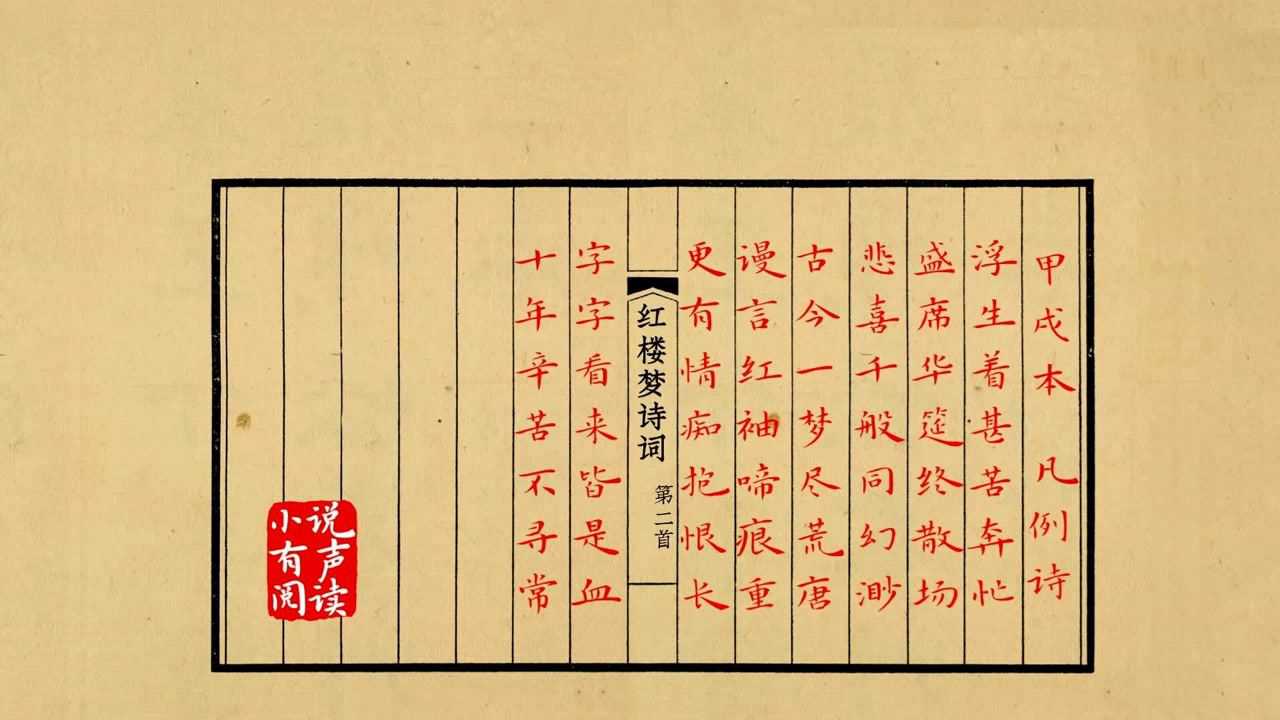 甲戌本 凡例诗
浮生着甚苦奔忙
盛席华筵终散场
悲喜千般同幻渺
古今一梦尽荒唐
谩言红袖啼痕重
更有情痴抱恨长
红楼梦诗词
第二首
字字看来皆是血
十年辛苦不寻常
说声读
小有阅